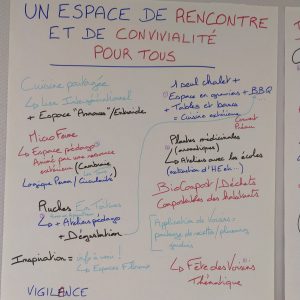 UN ESPACE DE RENCONTRE
ET DE CONVIVIALITÉ
POUR TOUS
Cuisine partagée
↳ Lien Intergénérationnel
+ Espace "Annonces"/Entraide
MicroFerme
↳ Espace pédago
Animé par une ressource
extérieure
Logique Permac / Circularité
Ruches En Tortues
↳ + Ateliers pédago
+ Dégustation
Inspiration = info à venir!
↳ Espaces
VIGILANCE
1 seul chalet +
Espace en graviers + BBQ
+ Tables et bancs
= Cuisine extérieure
Plantes médicinales
(aromatiques)
↳ Ateliers avec les écoles
(extraction d'HE...)
BioCompost / Déchets
Compostables des habitants
Application de Voisins =
partage de recette / plusieurs
↳ Fête des Voisins
Thématique